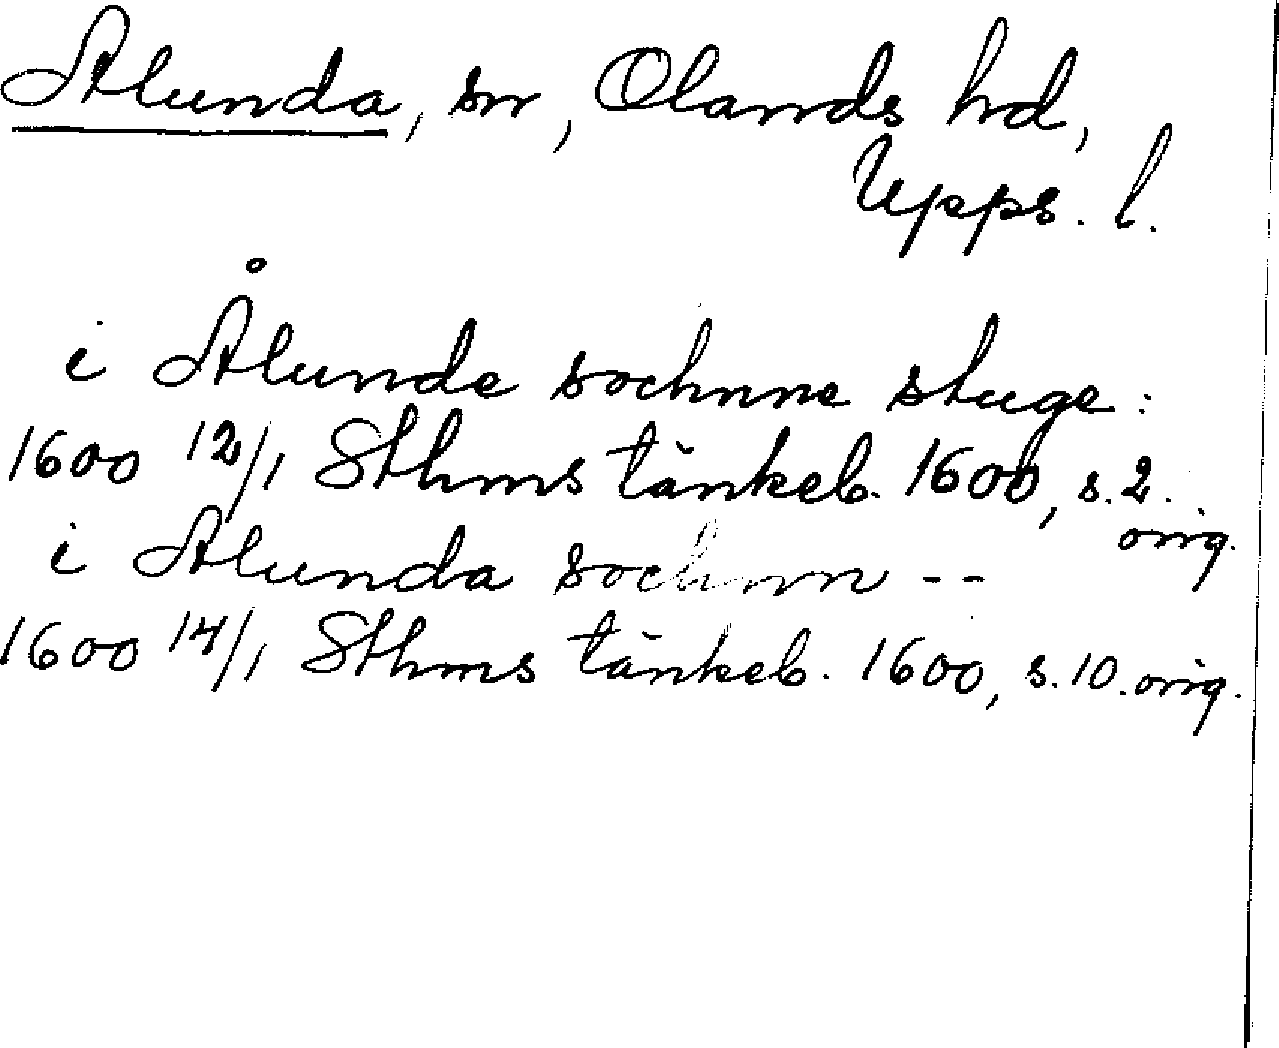 Alunda, sn, Olands hd,
Upps. l.
i Ålunde sochnne stuge:
1600 12/1 Sthms tänkeb. 1600, s. 2.
orig.
i Alunda sochnn --
1600 14/1 Sthms tänkeb. 1600, s. 10. orig.